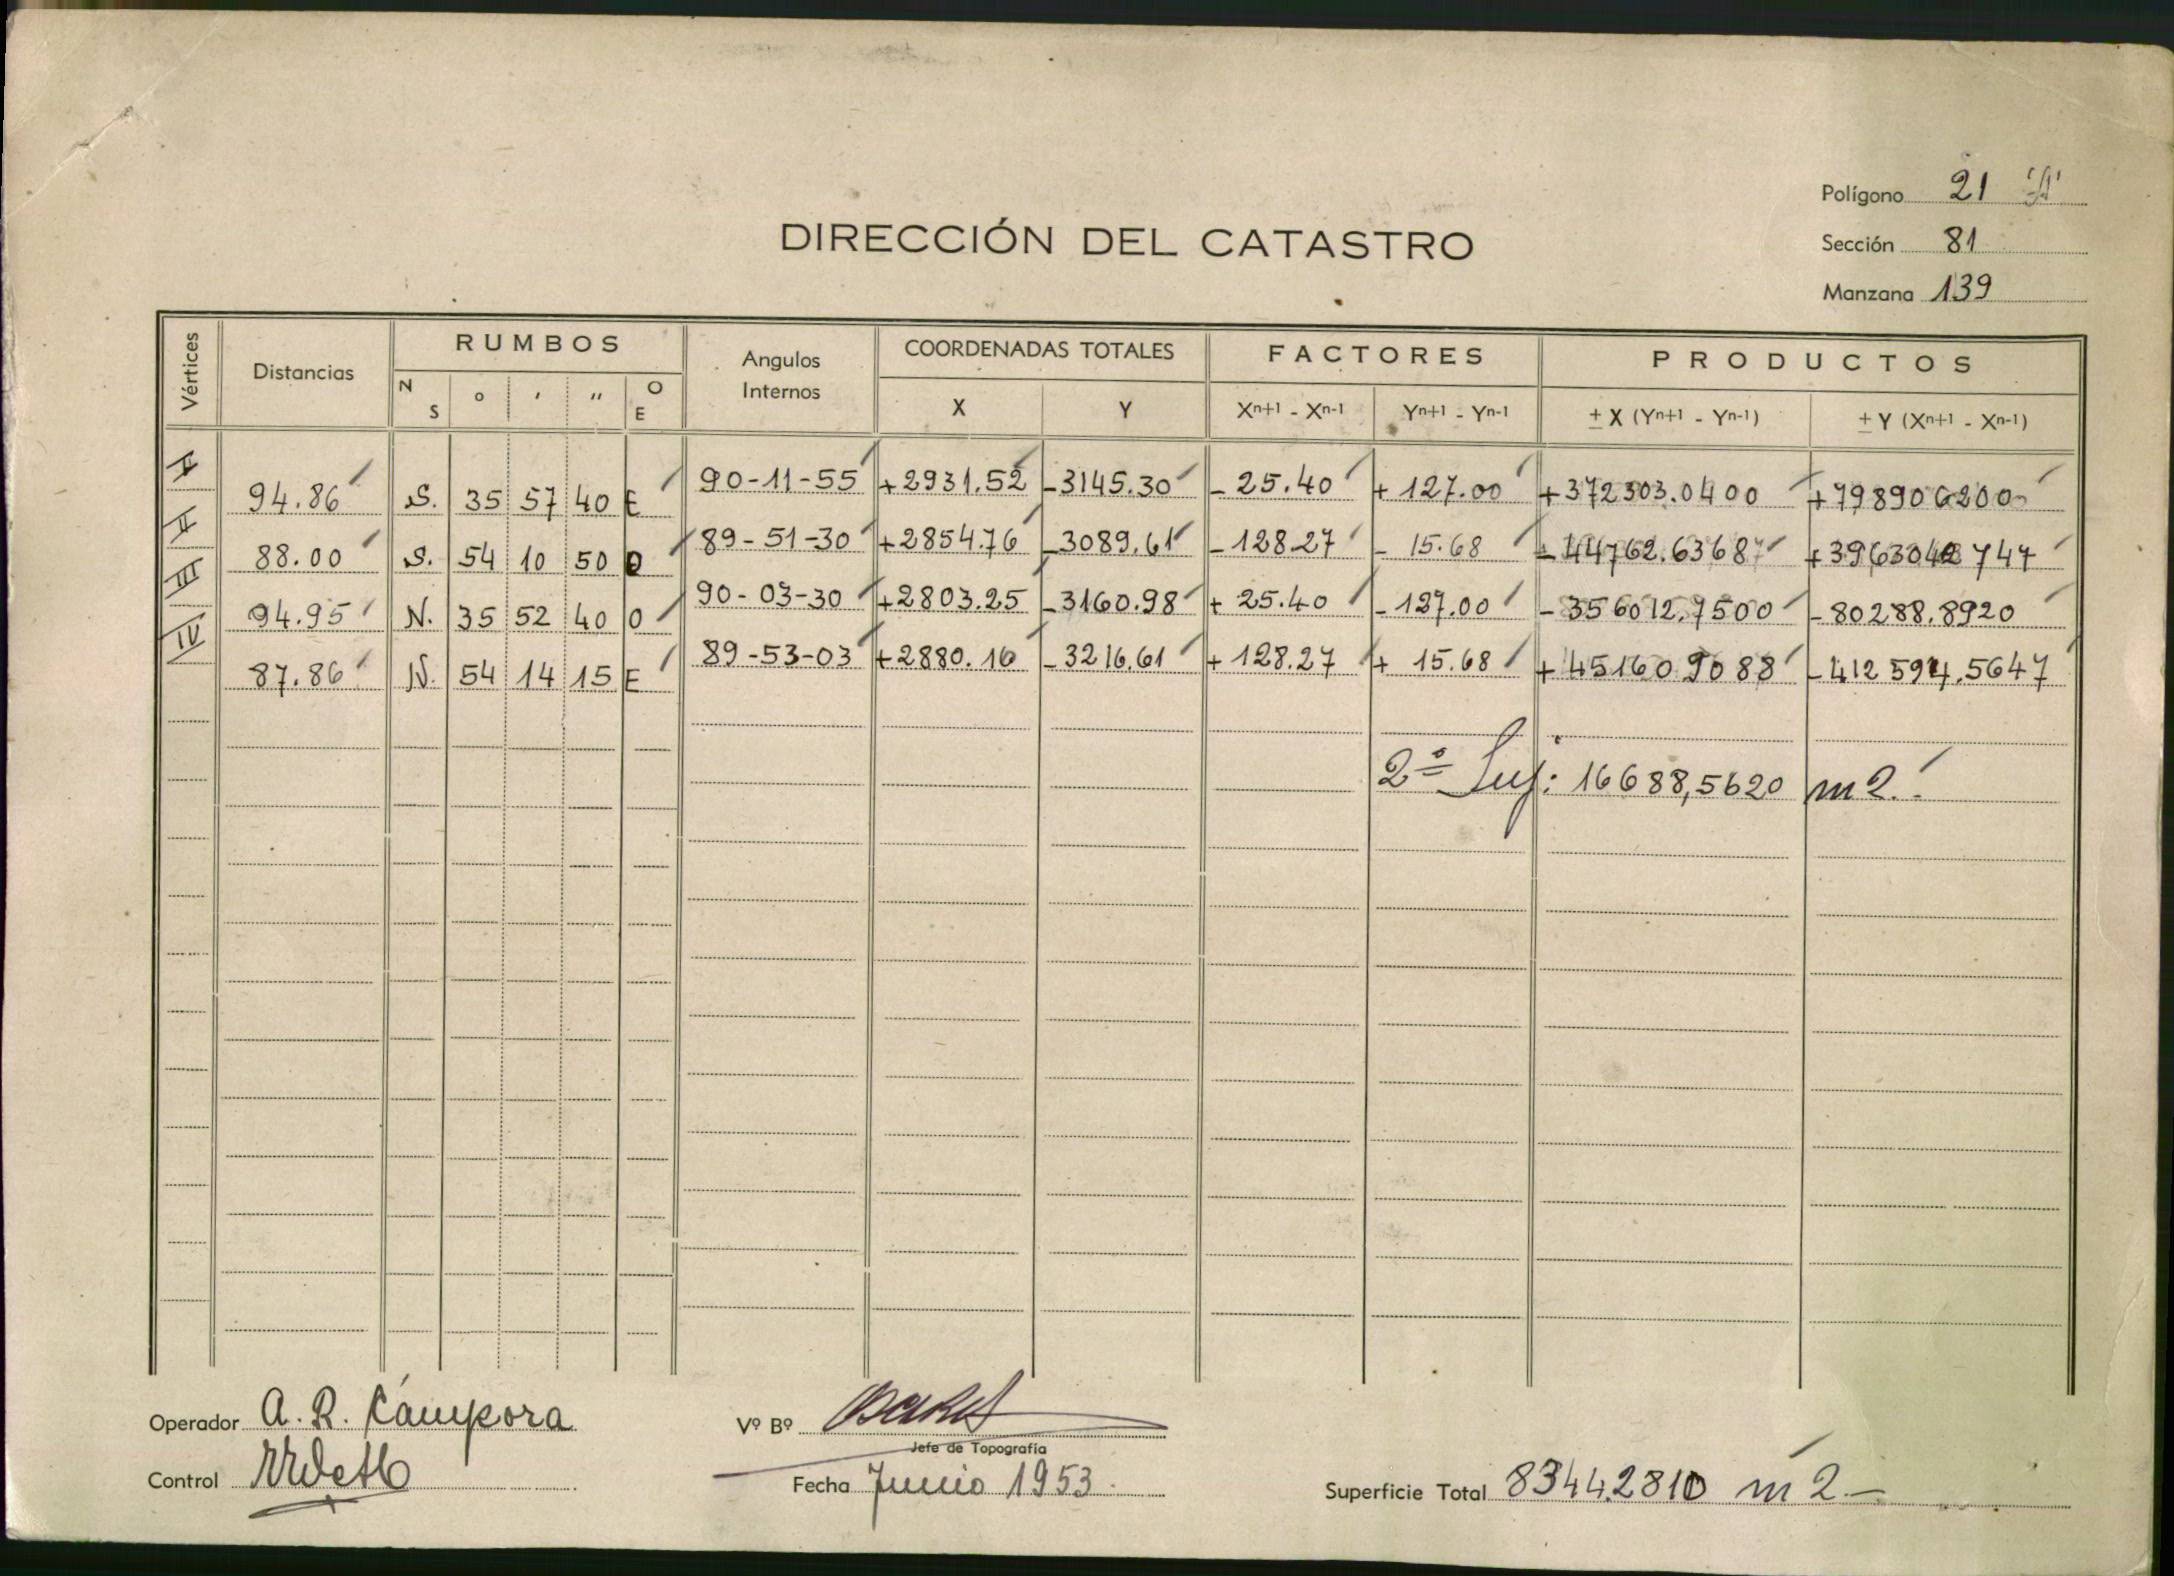 Polígono 21 "A"
Sección 81
Manzana 139
DIRECCIÓN DEL CATASTRO
Vértices Distancias RUMBOS Angulos Internos COORDENADAS TOTALES FACTORES PRODUCTOS
N S ° ' " O E X Y Xn+1 - Xn-1 Yn+1 - Yn-1 ± X (Yn+1 - Yn-1) ± Y (Xn+1 - Xn-1)
I 90-11-55 +2931.52 -3145.30 - 25.40 + 127.00 +372303.0400 +79890 6200
94.86 S. 35 57 40 E
II 89-51-30 +2854.76 -3089.61 - 128.27 - 15.68 - 44762.6368 +396304 2747
88.00 S. 54 10 50 O
III 90-03-30 +2803.25 -3160.98 + 25.40 - 127.00 - 356012.7500 - 80288.8920
94.95 N. 35 52 40 O
IV 89-53-03 +2880.16 -3216.61 + 128.27 + 15.68 + 45160 9088 -412594.5647
87.86 N. 54 14 15 E
2ª Sup: 16688,5620 m2.
Operador A. R. Cámpora
Vº Bº
Jefe de Topografía
Control
Fecha Junio 1953.
Superficie Total 8344.2810 m2-